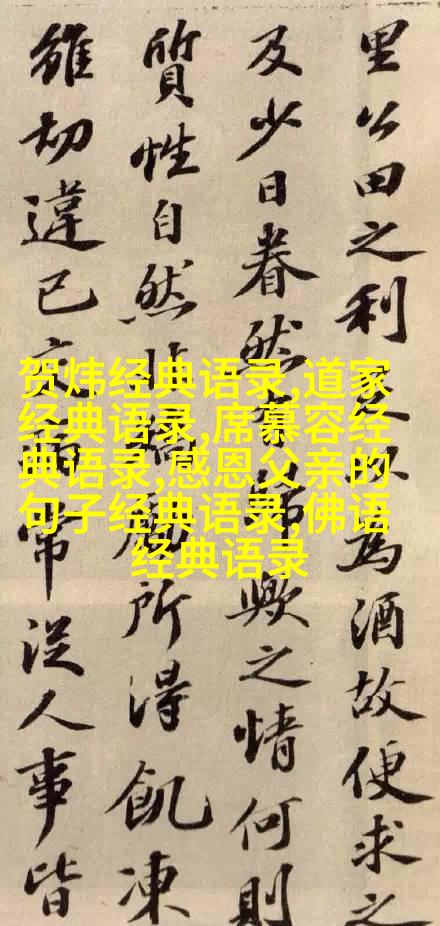 里公田之利足以為酒故便求之
及少日眷然有歸歟之情何則
質性自然非所得飢凍
雖切違已交病常從人事皆
贺炜经典语录,道家
经典语录,席慕容经
典语录,感恩父亲的
句子经典语录,佛语
经典语录